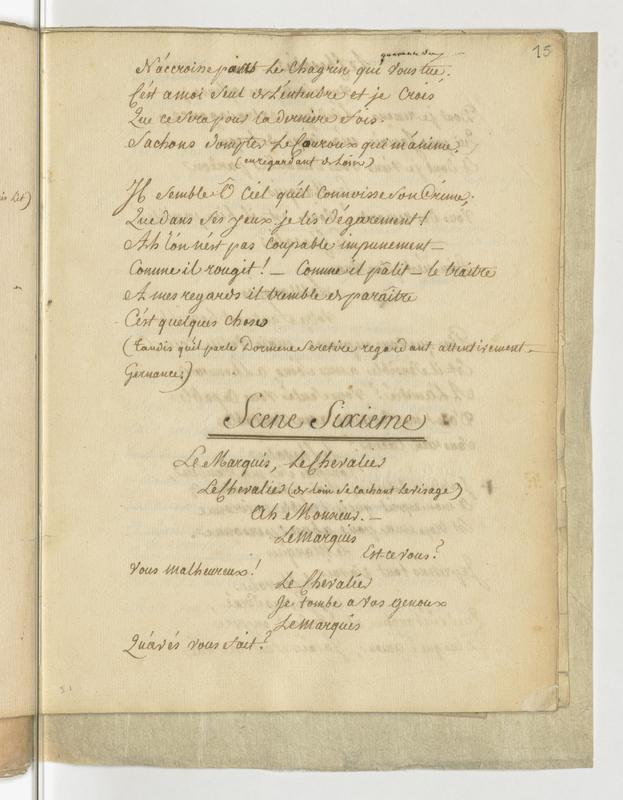 15
N'áccroise pas Le Chagrin qui vous tüe.
C'ést a moi Seul de L'entendre et je Crois
Que ce Sera pour la derniere fois.
Sachons dompter Le Couroux qui m'ánime.
(en regardant de Loin)
Il Semble Ô Ciel qu'il Connoisse Son Crime.
Que dans Ses yeux je lis d'égarement!
Ah l'ón n'ést pas Coupable impunement —
Comme il rougit! — Comme il pâlit — le traître
A mes regards il tremble de paraître
C'ést quelques choses
(tandis qu'il parle Dormene Se retire regardant attentivement —
Gernance;)
Scene Sixieme
Le Marquis, Le Chevalier
Le Chevalier (de loin Se Cachant Le visage)
Ah Monsieur. —
Le Marquis
Est-ce vous?
Vous malheureux!
Le Chevalier
Je tombe a vos genoux
Le Marquis
Qu'avés vous fait?